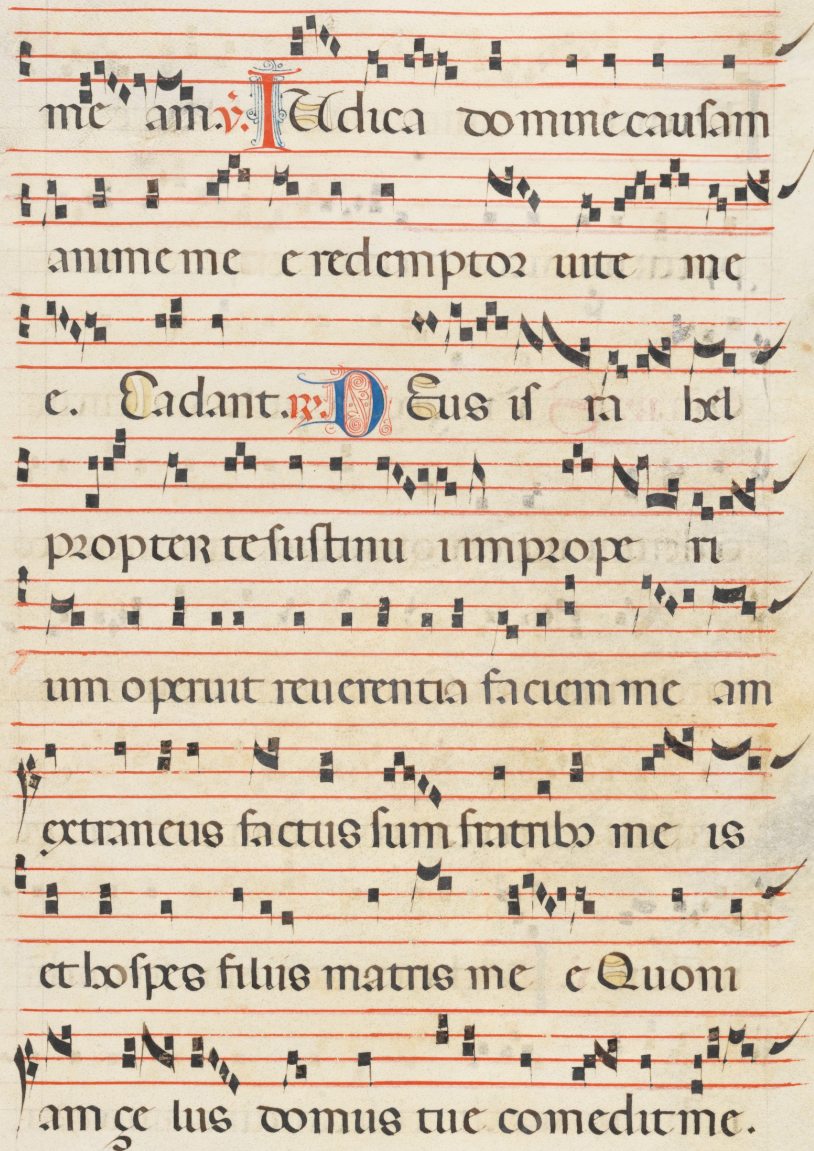 me am. v. IUdica domine causam
anime me e redemptor uite me
e. Cadant. r. DEus is ra hel
propter te sustinu i improope ri
um operuit reuerentia faciem me am
extraneus factus sum fratribꝰ me is
et hospes filiis matris me e Quoni
am çe lus domus tue comedit me.